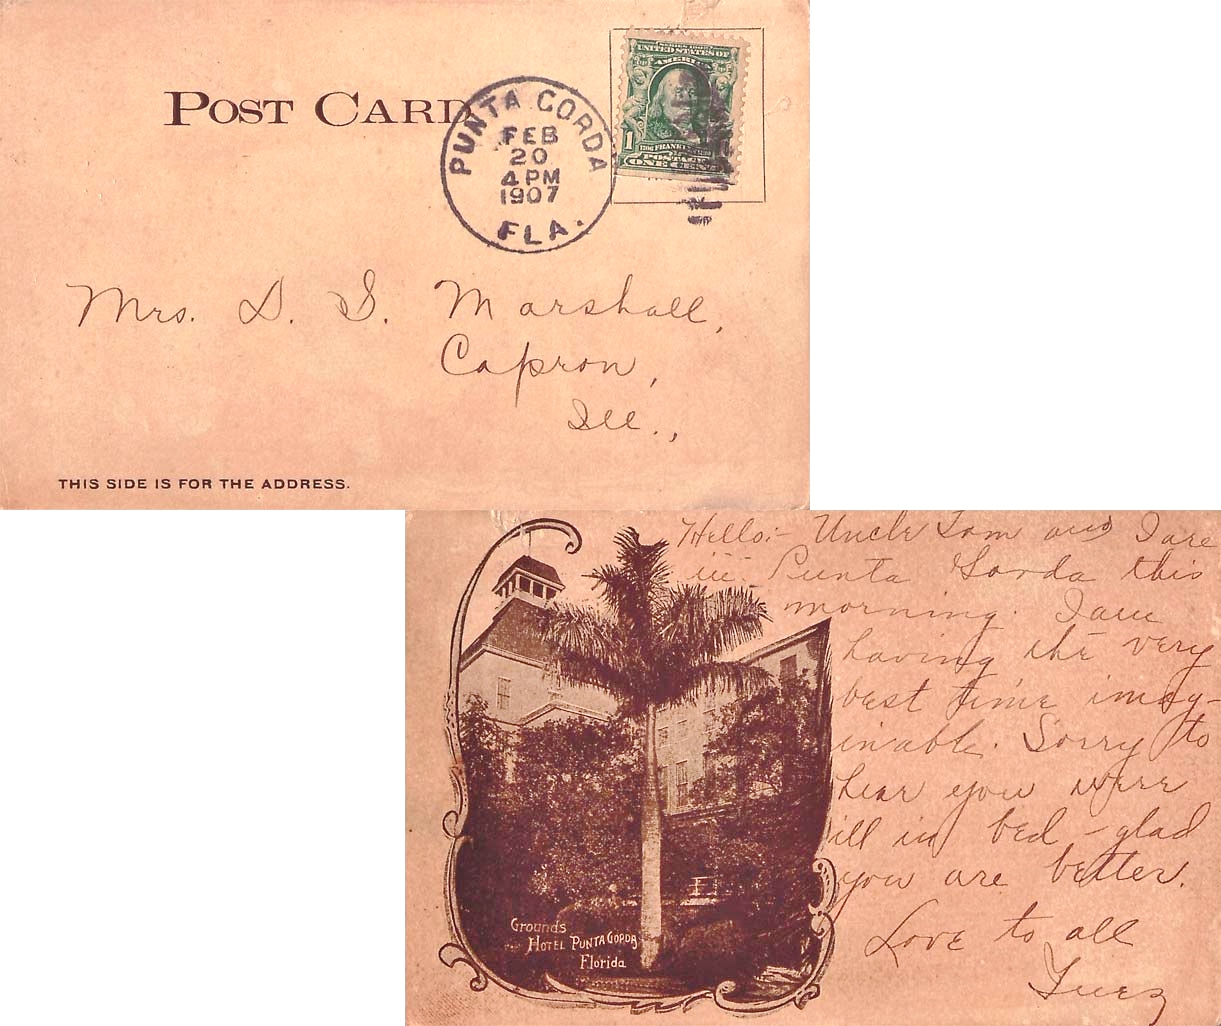 POST CARD
PUNTA GORDA
FEB
20
4 PM
1907
FLA.
SERIES 1902
UNITED STATES OF
AMERICA
1
FRANKLIN
POSTAGE
ONE CENT
Mrs. D. S. Marshall,
Capron,
Ill.,
THIS SIDE IS FOR THE ADDRESS.
Hello:- Uncle Sam and I are
in Punta Gorda this
morning. I am
having the very
best time imag-
inable. Sorry to
hear you were
ill in bed - glad
you are better.
Love to all
Grounds
HOTEL PUNTA GORDA
Florida